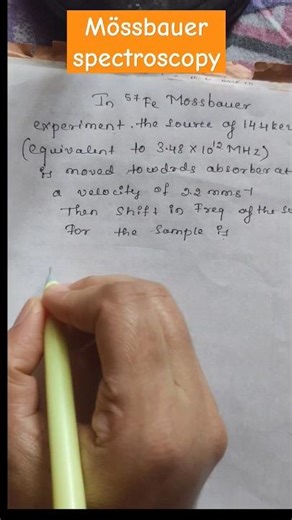 Mössbauer
spectroscopy
In ⁵⁷Fe Mossbauer
experiment. the source of 14.4kev
(equivalent to 3.48 × 10¹² MHz)
is moved towards absorber at
a velocity of 2.2 mms⁻¹
Then shift in Freq of the
For the sample is